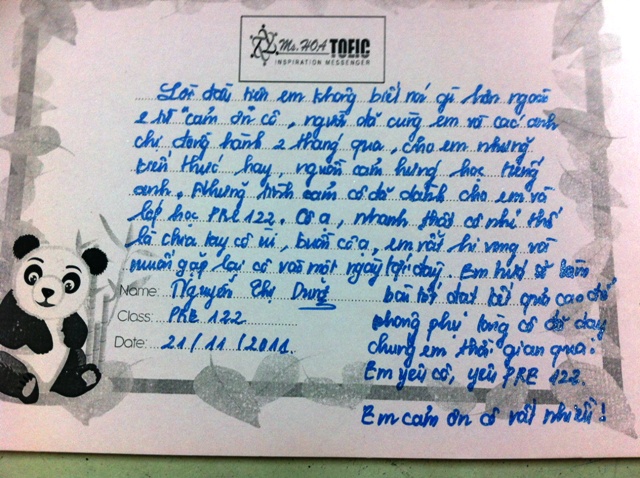 Ms. HOA TOEIC
INSPIRATION MESSENGER
Lời đầu tiên em không biết nói gì hơn ngoài
2 từ "cảm ơn cô, người đã cùng em và các anh
chị đồng hành 2 tháng qua, cho em những
kiến thức hay, nguồn cảm hứng học tiếng
anh. Những tình cảm cô đã dành cho em và
lớp học PRE 122. Cô ạ, nhanh thật cô nhỉ thế
là chia tay cô rùi, buồn cô ạ, em rất hi vọng và
muốn gặp lại cô vào một ngày tới đây. Em hứa sẽ
làm bài tốt đạt kết quả cao để
không phụ lòng cô đã dạy
chúng em thời gian qua.
Em yêu cô, yêu PRE 122.
Em cảm ơn cô rất nhiều!
Name: Nguyễn Thị
Class: PRE 122
Date: 21/11/2011.